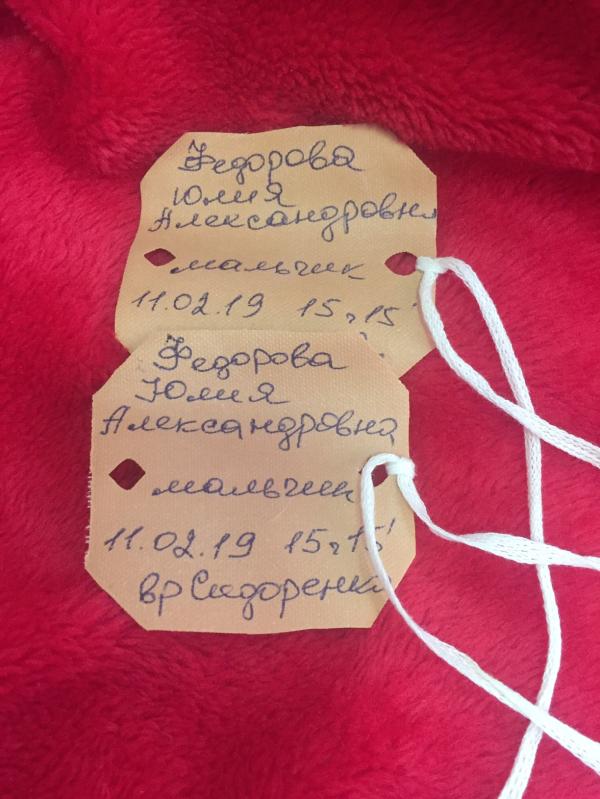 Федорова
Юлия
Александровна
мальчик
11.02.19 15ч15'
Федорова
Юлия
Александровна
мальчик
11.02.19 15ч15'
вр Сидоренко